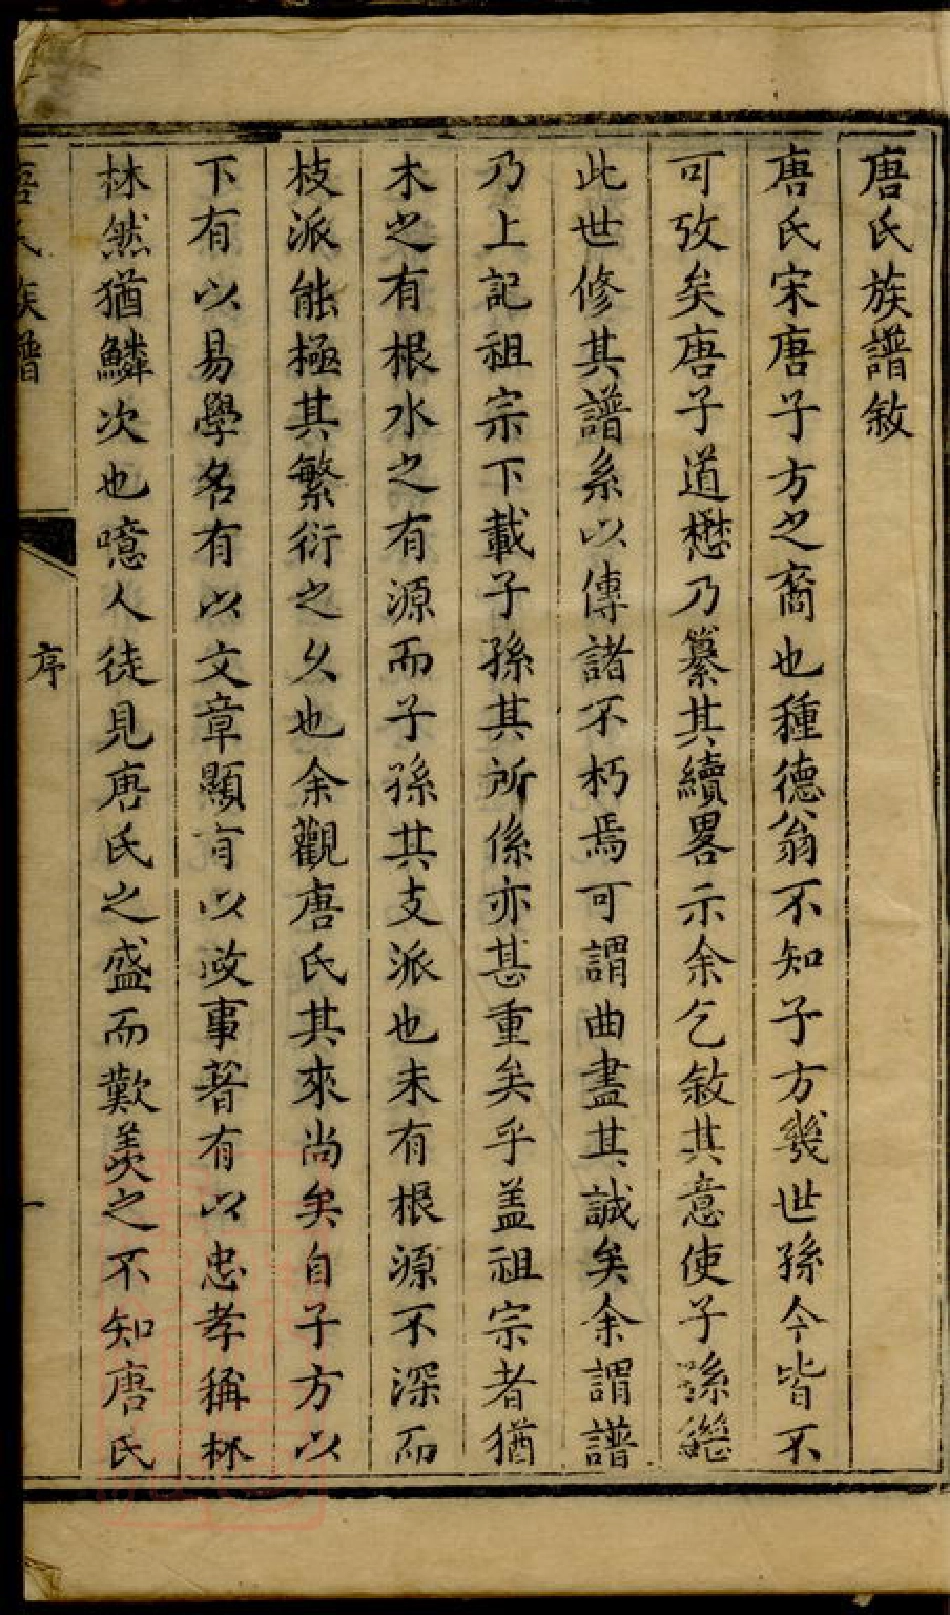 唐氏族譜敘
唐氏宋唐子方之裔也種德翁不知子方幾世孫今皆不
可攷矣唐子道懋乃纂其續畧示余乞敘其意使子孫繼
此世修其譜系以傳諸不朽焉可謂曲盡其誠矣余謂譜
乃上記祖宗下載子孫其所係亦甚重矣乎盖祖宗者猶
木之有根水之有源而子孫其支派也未有根源不深而
枝派能極其繁衍之久也余觀唐氏其來尚矣自子方以
下有以易學名有以文章顯有以政事著有以忠孝稱林
林然猶鱗次也噫人徒見唐氏之盛而歎羨之不知唐氏
唐氏族譜
序
一